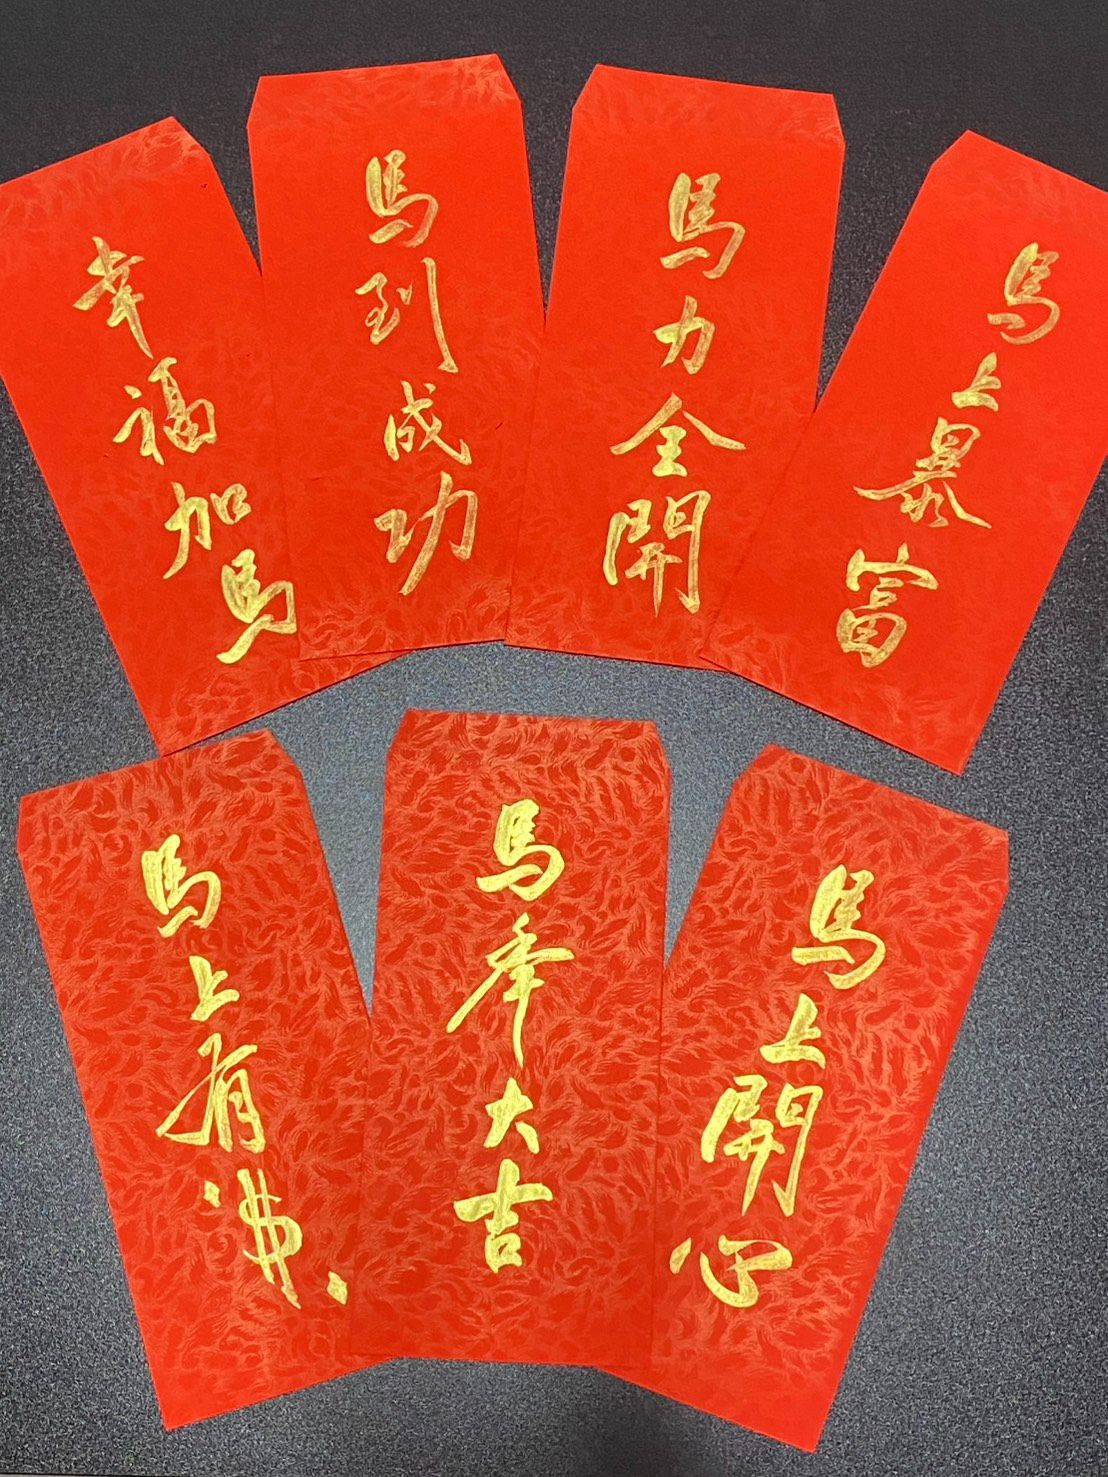 幸福加馬
馬到成功
馬力全開
馬上暴富
馬上有
馬年大吉
馬上開心